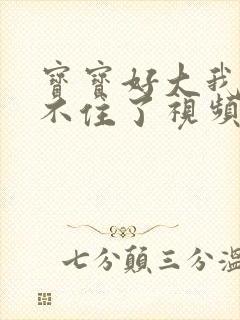 寶寶好大我
不住了視頻
七分顛三分溫